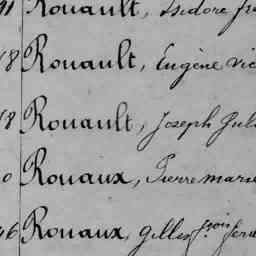 Rouault, Isidore
8 Rouault, Eugène
8 Rouault, Joseph
Rouaux, Pierre marie
46 Rouaux, gilles fçois